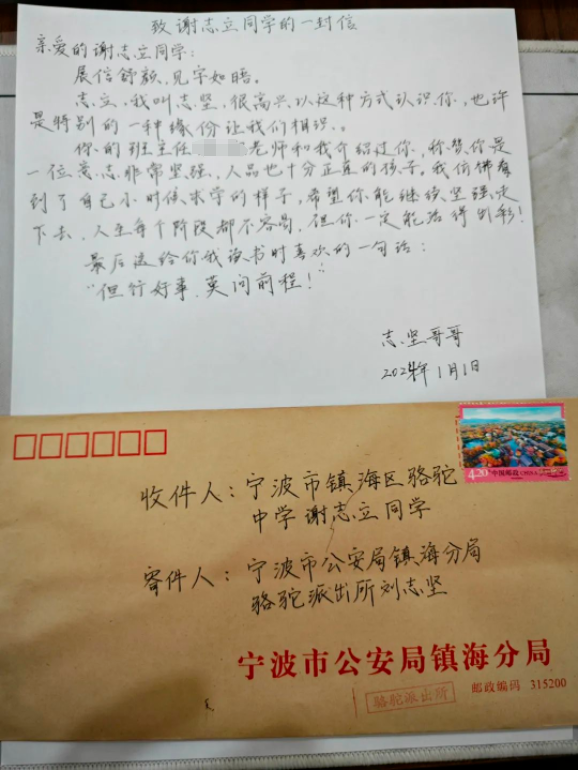 致谢志立同学的一封信
亲爱的谢志立同学：
展信舒颜，见字如晤。
志立，我叫志坚，很高兴以这种方式认识你，也许
是特别的一种缘份让我们相识。
你的班主任老师和我介绍过你，称赞你是
一位意志非常坚强、人品也十分正直的孩子。我仿佛看
到了自己小时候求学的样子，希望你能继续坚强走
下去，人生每个阶段都不容易，但你一定能活得出彩！
最后送给你我读书时喜欢的一句话：
“但行好事，莫问前程！”
志坚哥哥
2024年1月1日
4.20元
中国邮政 CHINA
收件人：宁波市镇海区骆驼
中学谢志立同学
寄件人：宁波市公安局镇海分局
骆驼派出所刘志坚
宁波市公安局镇海分局
骆驼派出所
邮政编码 315200